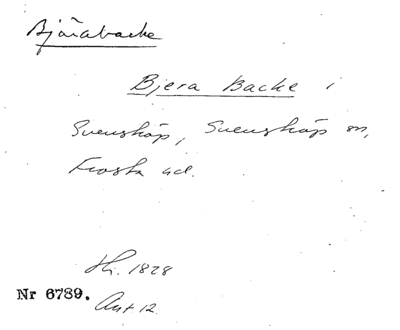 Bjärabacke
Bjera Backe i
Svensköp, Svensköp sn,
Frosta hd.
Hi. 1828
Nr 6789.
Akt 12